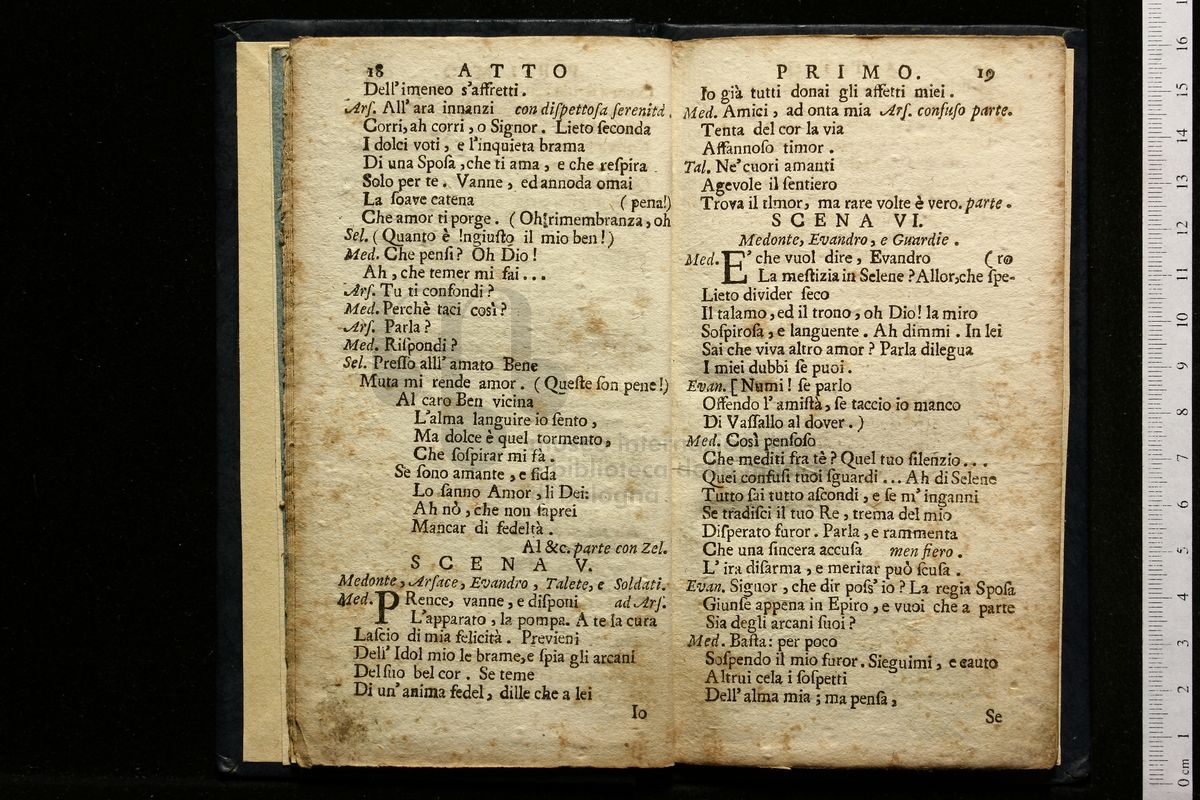 18 ATTO
Dell' imeneo s'affretti.
Arſ. All' ara innanzi con diſpettoſa ſerenità.
Corri, ah corri, o Signor. Lieto ſeconda
I dolci voti, e l'inquieta brama
Di una Spoſa, che ti ama, e che reſpira
Solo per te. Vanne, ed annoda omai
La ſoave catena (pena!)
Che amor ti porge. (Oh! rimembranza, oh
Sel. (Quanto è Ingiuſto il mio ben!)
Med. Che penſi? Oh Dio!
Ah, che temer mi fai...
Arſ. Tu ti confondi?
Med. Perchè taci così?
Arſ. Parla?
Med. Riſpondi?
Sel. Preſſo all' amato Bene
Muta mi rende amor. (Queſte ſon pene!)
Al caro Ben vicina
L'alma languire io ſento,
Ma dolce è quel tormento,
Che ſoſpirar mi fà.
Se ſono amante, e fida
Lo ſanno Amor, li Dei:
Ah nò, che non ſaprei
Mancar di fedeltà.
Al &c. parte con Zel.
SCENA V.
Medonte, Arſace, Evandro, Talete, e Soldati.
Med. PRence, vanne, e diſponi ad Arſ.
L'apparato, la pompa. A te la cura
Laſcio di mia felicità. Previeni
Dell' Idol mio le brame, e ſpia gli arcani
Del ſuo bel cor. Se teme
Di un' anima fedel, dille che a lei
Io
PRIMO. 19
Io già tutti donai gli affetti miei.
Med. Amici, ad onta mia Arſ. confuſo parte.
Tenta del cor la via
Affannoſo timor.
Tal. Ne' cuori amanti
Agevole il ſentiero
Trova il tImor, ma rare volte è vero. parte.
SCENA VI.
Medonte, Evandro, e Guardie.
Med. E' che vuol dire, Evandro (ro
La meſtizia in Selene? Allor, che ſpe-
Lieto divider ſeco
Il talamo, ed il trono, oh Dio! la miro
Soſpiroſa, e languente. Ah dimmi. In lei
Sai che viva altro amor? Parla dilegua
I miei dubbi ſe puoi.
Evan. [Numi! ſe parlo
Offendo l' amiſtà, ſe taccio io manco
Di Vaſſallo al dover.)
Med. Così penſoſo
Che mediti fra tè? Quel tuo ſilenzio...
Quei confuſi tuoi ſguardi... Ah di Selene
Tutto ſai tutto aſcondi, e ſe m' inganni
Se tradiſci il tuo Re, trema del mio
Diſperato furor. Parla, e rammenta
Che una ſincera accuſa men fiero.
L' ira diſarma, e meritar può ſcuſa.
Evan. Signor, che dir poſſ' io? La regia Spoſa
Giunſe appena in Epiro, e vuoi che a parte
Sia degli arcani ſuoi?
Med. Baſta: per poco
Soſpendo il mio furor. Sieguimi, e cauto
Altrui cela i ſoſpetti
Dell' alma mia; ma penſa,
Se